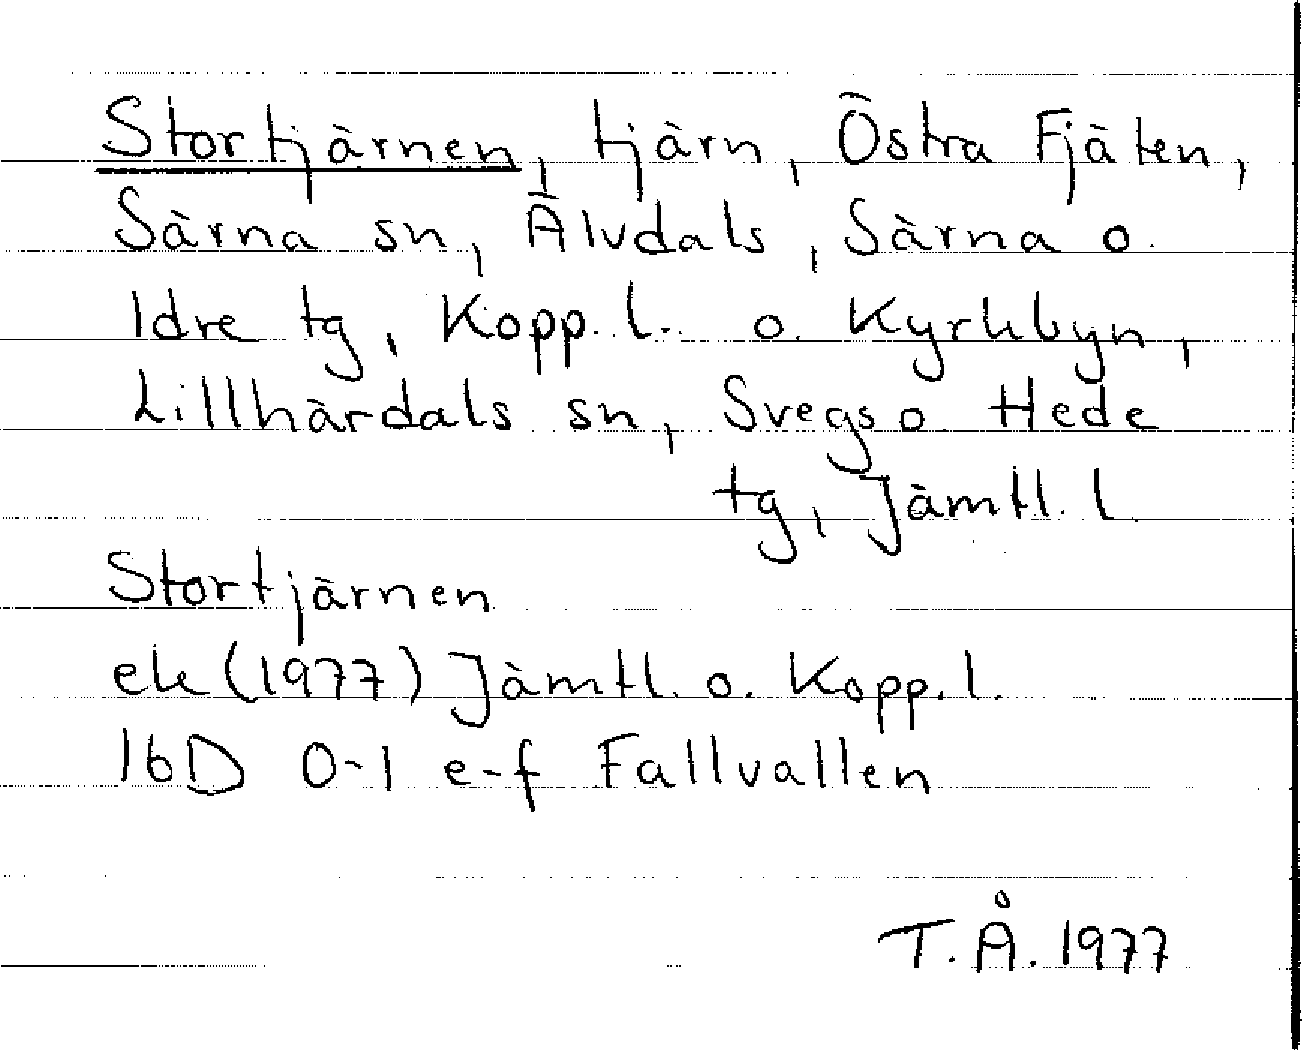 Stortjärnen, tjärn, Östra Fjäten,
Särna sn, Älvdals, Särna o.
Idre tg, Kopp. l. o. Kyrkbyn,
Lillhärdals sn, Svegs o Hede
tg, Jämtl. l.
Stortjärnen
ek (1977) Jämtl. o. Kopp. l.
16D 0-1 e-f Fallvallen
T.Å. 1977